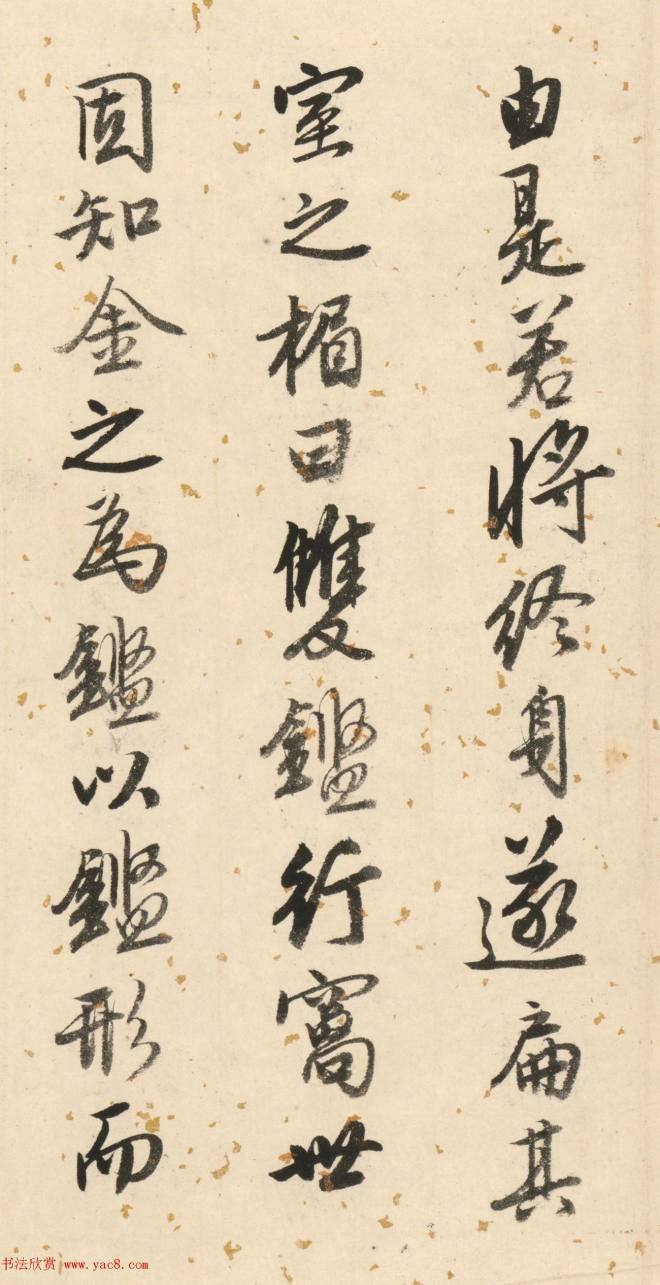 由是若將終身遂扁其
室之楣曰雙鑑行窩世
固知金之為鑑以鑑形而
书法欣赏 www.yac8.com